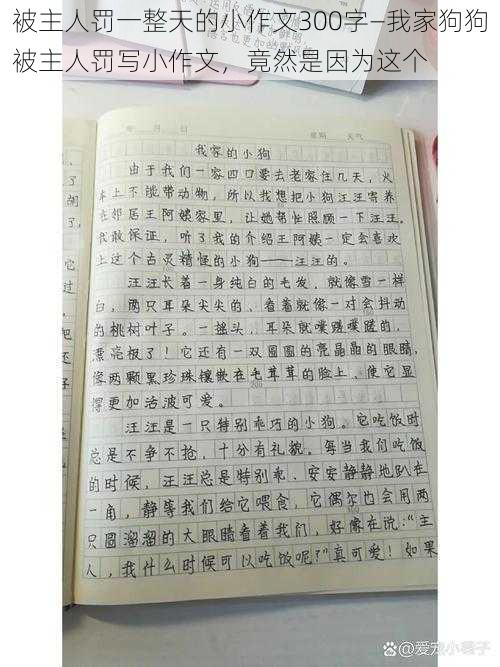 被主人罚一整天的小作文300字—我家狗狗
被主人罚写小作文，竟然是因为这个
年 月 日 星期 天气
我家的小狗
由于我们一家四口要去老家住几天，火
车上不能带动物，所以我想把小狗汪汪寄养
在邻居王阿姨家里，让她帮忙照顾一下汪汪。
我敢保证，听了我的介绍王阿姨一定会喜欢
上这个古灵精怪的小狗——汪汪的。
汪汪长着一身纯白的毛发，就像雪一样
白，两只耳朵尖尖的、看着就像一对会抖动
的桃树叶子。一摇头，耳朵就噗蹬噗蹬的，
漂亮极了！它还有一双圆圆的亮晶晶的眼睛，
像两颗黑珍珠镶嵌在毛茸茸的脸上、使它显
得更加活波可爱。
汪汪是一只特别乖巧的小狗。它吃饭时
总是不争不抢，十分有礼貌。每当我们吃饭
的时候，汪汪总是特别乖、安安静静地趴在
一角，静等我们给它喂食，它偶尔也会用两
只圆溜溜的大眼睛看着我们，好像在说：“主
人，我什么时候可以吃饭呢？”真可爱！如果
@爱宠小君子